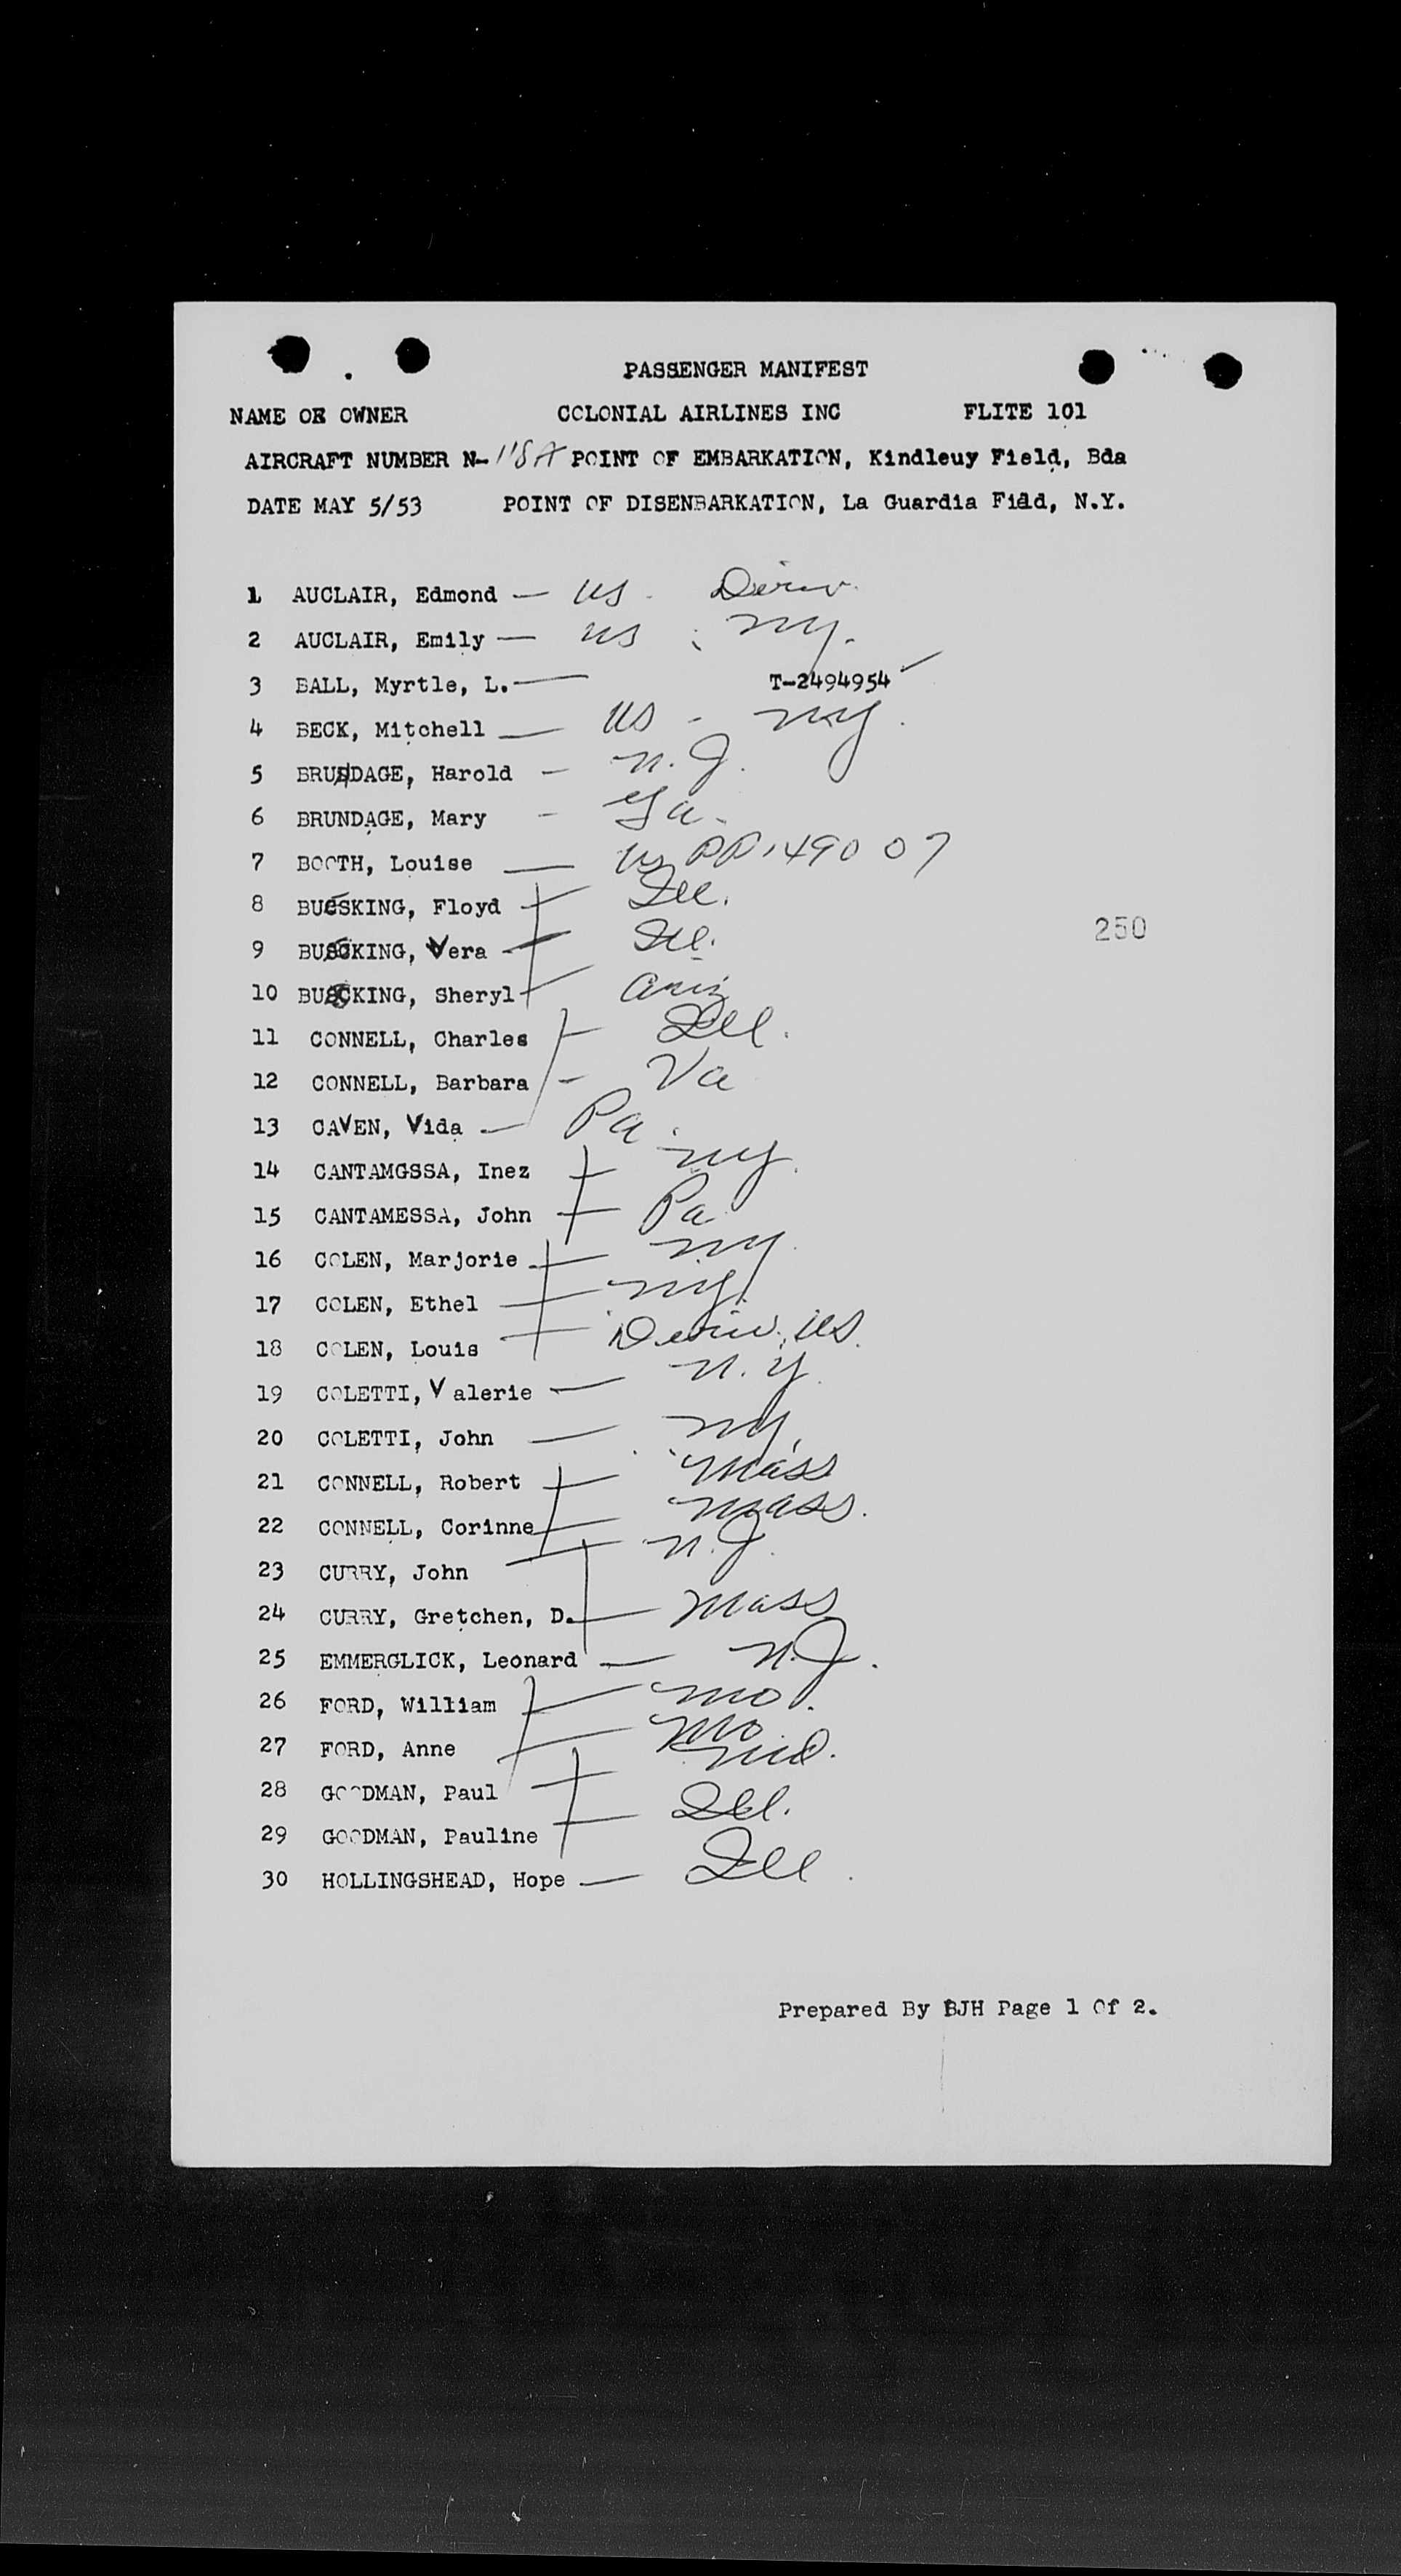 PASSENGER MANIFEST
NAME OR OWNER COLONIAL AIRLINES INC FLITE 101
AIRCRAFT NUMBER N-118A POINT OF EMBARKATION, Kindleuy Field, Bda
DATE MAY 5/53 POINT OF DISENBARKATION, La Guardia Fild, N.Y.
1 AUCLAIR, Edmond — US - Deriv.
2 AUCLAIR, Emily — US - NY.
3 BALL, Myrtle, L. — T-2494954 ✓
4 BECK, Mitchell — US - NY.
5 BRUNDAGE, Harold — N.J.
6 BRUNDAGE, Mary - Ga.
7 BOOTH, Louise — US PP 149007
8 BUESKING, Floyd — Ill.
9 BUESKING, Vera — Ill.
10 BUESKING, Sheryl — Ariz
11 CONNELL, Charles — Ill.
12 CONNELL, Barbara — Va
13 CAVEN, Vida — Pa.
14 CANTAMGSSA, Inez — NY.
15 CANTAMESSA, John — Pa.
16 COLEN, Marjorie — NY.
17 COLEN, Ethel — NY.
18 COLEN, Louis — Deriv. US.
19 COLETTI, Valerie — N.Y.
20 COLETTI, John — NY.
21 CONNELL, Robert — Mass
22 CONNELL, Corinne — Mass.
23 CURRY, John — N.J.
24 CURRY, Gretchen, D. — Mass
25 EMMERGLICK, Leonard — N.J.
26 FORD, William — Mo.
27 FORD, Anne — Mo
28 GOODMAN, Paul — Md.
29 GOODMAN, Pauline — Ill.
30 HOLLINGSHEAD, Hope — Ill.
250
Prepared By BJH Page 1 Of 2.